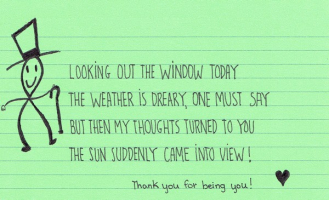 LOOKING OUT THE WINDOW TODAY
THE WEATHER IS DREARY, ONE MUST SAY
BUT THEN MY THOUGHTS TURNED TO YOU
THE SUN SUDDENLY CAME INTO VIEW!
Thank you for being you!